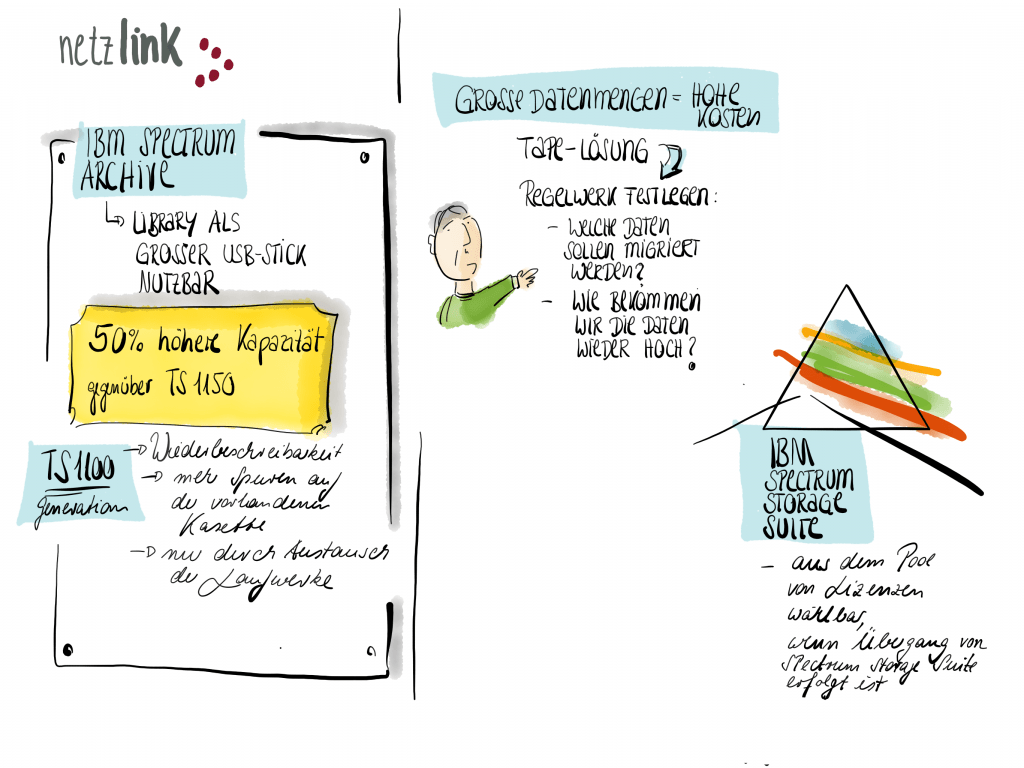 netzlink
IBM SPECTRUM
ARCHIVE
LIBRARY ALS
GROSSER USB-STICK
NUTZBAR
50% höhere Kapazität
gegenüber TS 1150
TS1100
Generation
Wiederbeschreibbarkeit
mehr Spuren auf
der vorhandenen
Kasette
nur durch Austausch
der Laufwerke
GROSSE DATENMENGEN = HOHE
KOSTEN
TAPE-LÖSUNG
REGELWERK FESTLEGEN:
- WELCHE DATEN
SOLLEN MIGRIERT
WERDEN?
- WIE BEKOMMEN
WIR DIE DATEN
WIEDER HOCH?
IBM
SPECTRUM
STORAGE
SUITE
- aus dem Pool
von Lizenzen
wählbar,
wenn Übergang von
Spectrum Storage Suite
erfolgt ist